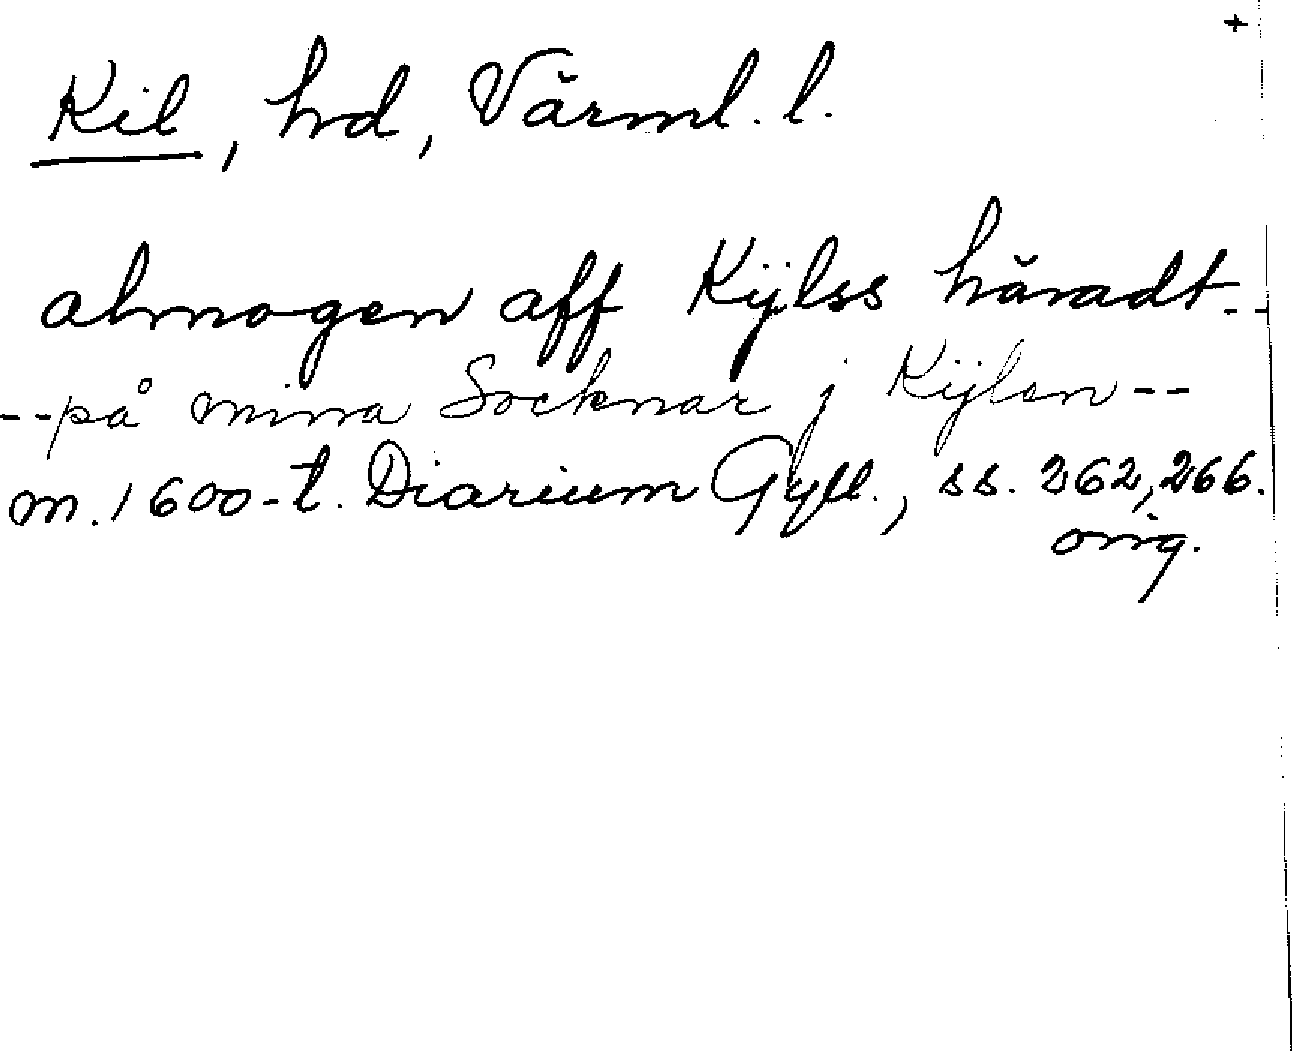 +
Kil, hd, Värml. l.
almogen aff Kijlss häradt --
-- på mina Socknar j Kijlen --
m. 1600-t. Diarium Gyll., ss. 262, 266.
orig.